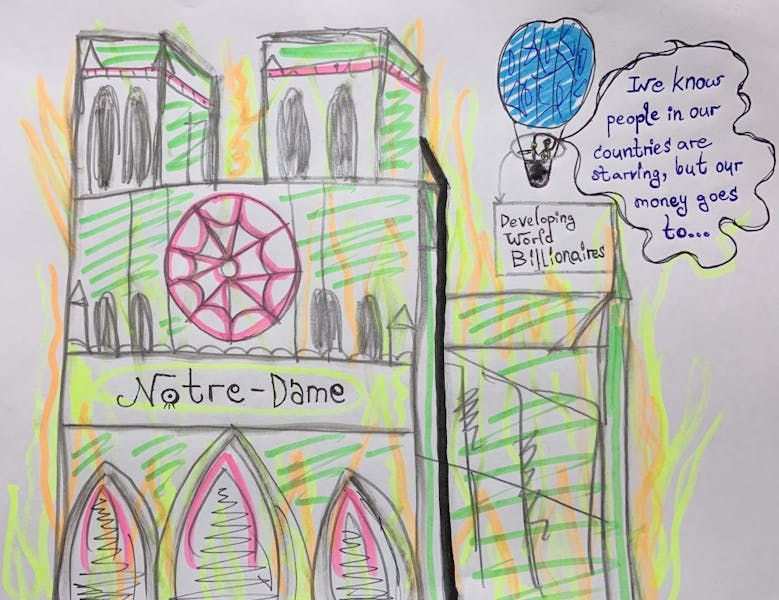 We know
people in our
countries are
starving, but our
money goes
to...
Developing
World
Billionaires
Notre-Dame